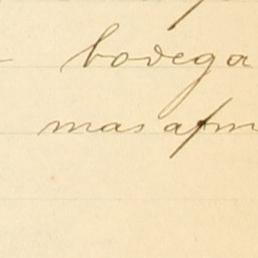 bodega
mas afm